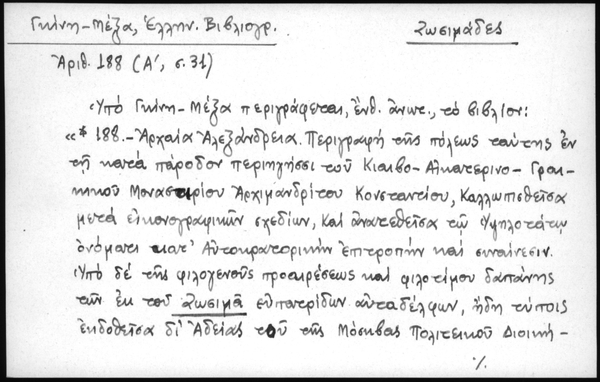 Γκίνη-Μέξα, Ἑλλην. Βιβλιογρ. Ζωσιμάδες
Ἀριθ. 188 (Α', σ. 31)
Ὑπό Γκίνη-Μέξα περιγράφεται, ἔνθ. ἄνωτ., τό βιβλίον:
«* 188.- Ἀρχαία Ἀλεξάνδρεια. Περιγραφή τῆς πόλεως ταύτης ἐν
τῇ κατά πάροδον περιηγήσει τοῦ Κιαιβο-Αικατερινο-Γραι-
κικοῦ Μοναστηρίου Ἀρχιμανδρίτου Κονσταντίου, Καλλωπισθεῖσα
μετά εἰκονογραφικῶν σχεδίων, καί ἀνατεθεῖσα τῷ Ὑψηλοτάτῳ
ὀνόματι κατ' Αὐτοκρατορικήν ἐπιτροπήν καί συναίνεσιν.
Ὑπό δέ τῆς φιλογενοῦς προαιρέσεως καί φιλοτίμου δαπάνης
τῶν ἐκ τοῦ Ζωσιμᾶ εὐπατρίδων αὐταδέλφων, ἤδη τύποις
ἐκδοθεῖσα δι' Ἀδείας τοῦ τῆς Μόσκβας Πολιτικοῦ Διοικη-
·/.